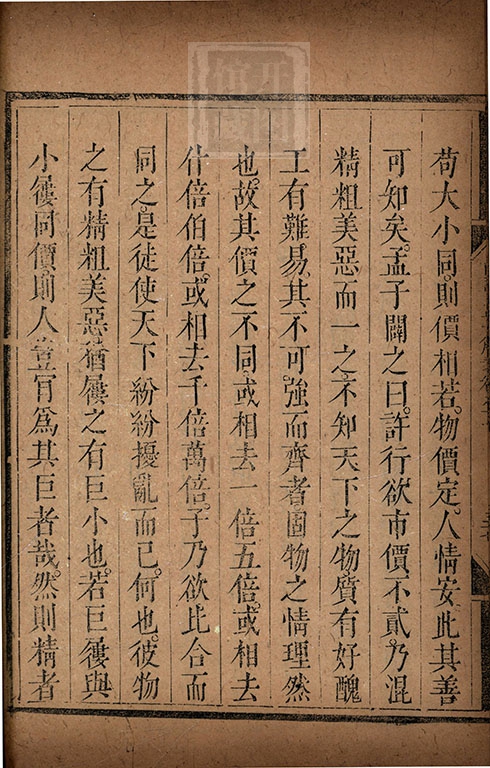 苟大小同。則價相若。物價定。人情安。此其善
可知矣。孟子闢之曰。許行欲市價不貳。乃混
精粗美惡而一之。不知天下之物。質有好醜
工有難易。其不可強而齊者。固物之情理然
也。故其價之不同。或相去一倍五倍。或相去
什倍伯倍。或相去千倍萬倍。子乃欲比合而
同之。是徒使天下紛紛擾亂而已。何也。彼物
之有精粗美惡。猶屨之有巨小也。若巨屨與
小屨同價。則人豈肯為其巨者哉。然則精者